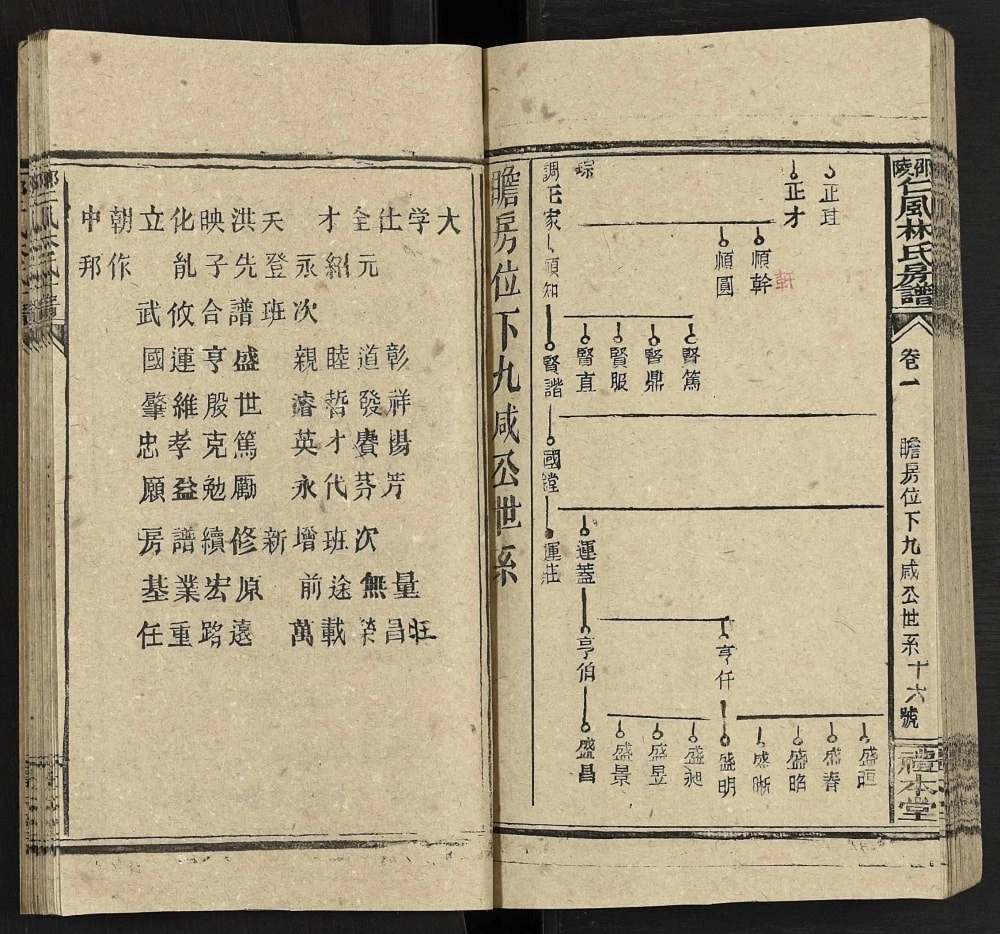 邵陵仁風林氏房譜
卷一
瞻房位下九咸公世系
十六號
禮本堂
正才
順幹
順圓
賢篤
賢鼎
賢服
賢直
運蓋
亨仟
亨伯
盛晅
盛春
盛昭
盛晰
盛明
盛昶
盛昱
盛景
盛昌
順知
賢諧
國鏜
運莊
瞻房位下九咸公世系
大学仕全才 天洪映化立朝中
元紹永登先子胤 作邦
武攸合譜班次
國運亨盛 親睦道彰
肇維殷世 濬哲發祥
忠孝克篤 英才賡揚
願益勉勵 永代芬芳
房譜續修新增班次
基業宏原 前途無量
任重路遠 萬載榮昌旺